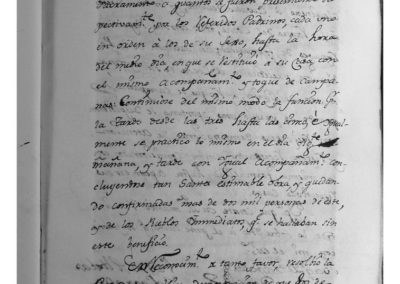 a quantos
pectivam.te por los referidos Padrinos, cada uno
en orden á los de su sexo, hasta la hora
del medio dia, en que se restituió á su Casa, con
el mismo Acompañam.to y toque de Campa-
nas: Continuose del mismo modo la funcion p.r
la tarde desde las tres hasta las
mente se practicó lo mismo en el dia sig.te
mañana, y tarde con igual Acompañam.to con-
cluyendose tan Santa estimable obra, y quedan-
do confirmadas mas de dos mil personas de este,
y de los Pueblos Immediatos, q.e se hallaban sin
este beneficio.
En reconocim.to á tanto favor,